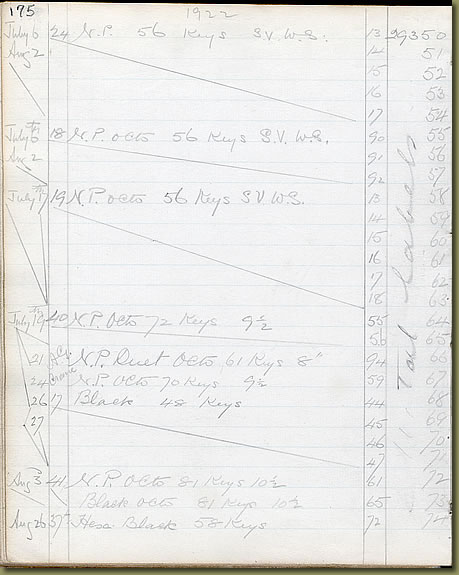 175 1922
July 6 24 N.P. 56 Keys S.V. W.S. 13 29350
Aug 2 14 51
15 52
16 53
17 54
July 6 18 N.P. Octo 56 Keys S.V. W.S. 90 55
Aug 2 91 56
92 57
July 17 19 N.P. Octo 56 Keys S V W.S. 13 58
14 59
15 60
16 61
17 62
18 63
July 19 40 N.P. Octo 72 Keys 9½ 55 64
56 65
21 N.P. Duet Octo 61 Keys 8" 94 66
24 N.P. Octo 70 Keys 9½ 59 67
26 17 Black 48 Keys 44 68
27 45 69
46 70
47 71
Aug 3 41 N.P. Octo 81 Keys 10½ 61 72
Black Octo 81 Keys 10½ 65 73
Aug 26 37 Hexa Black 58 Keys 72 74